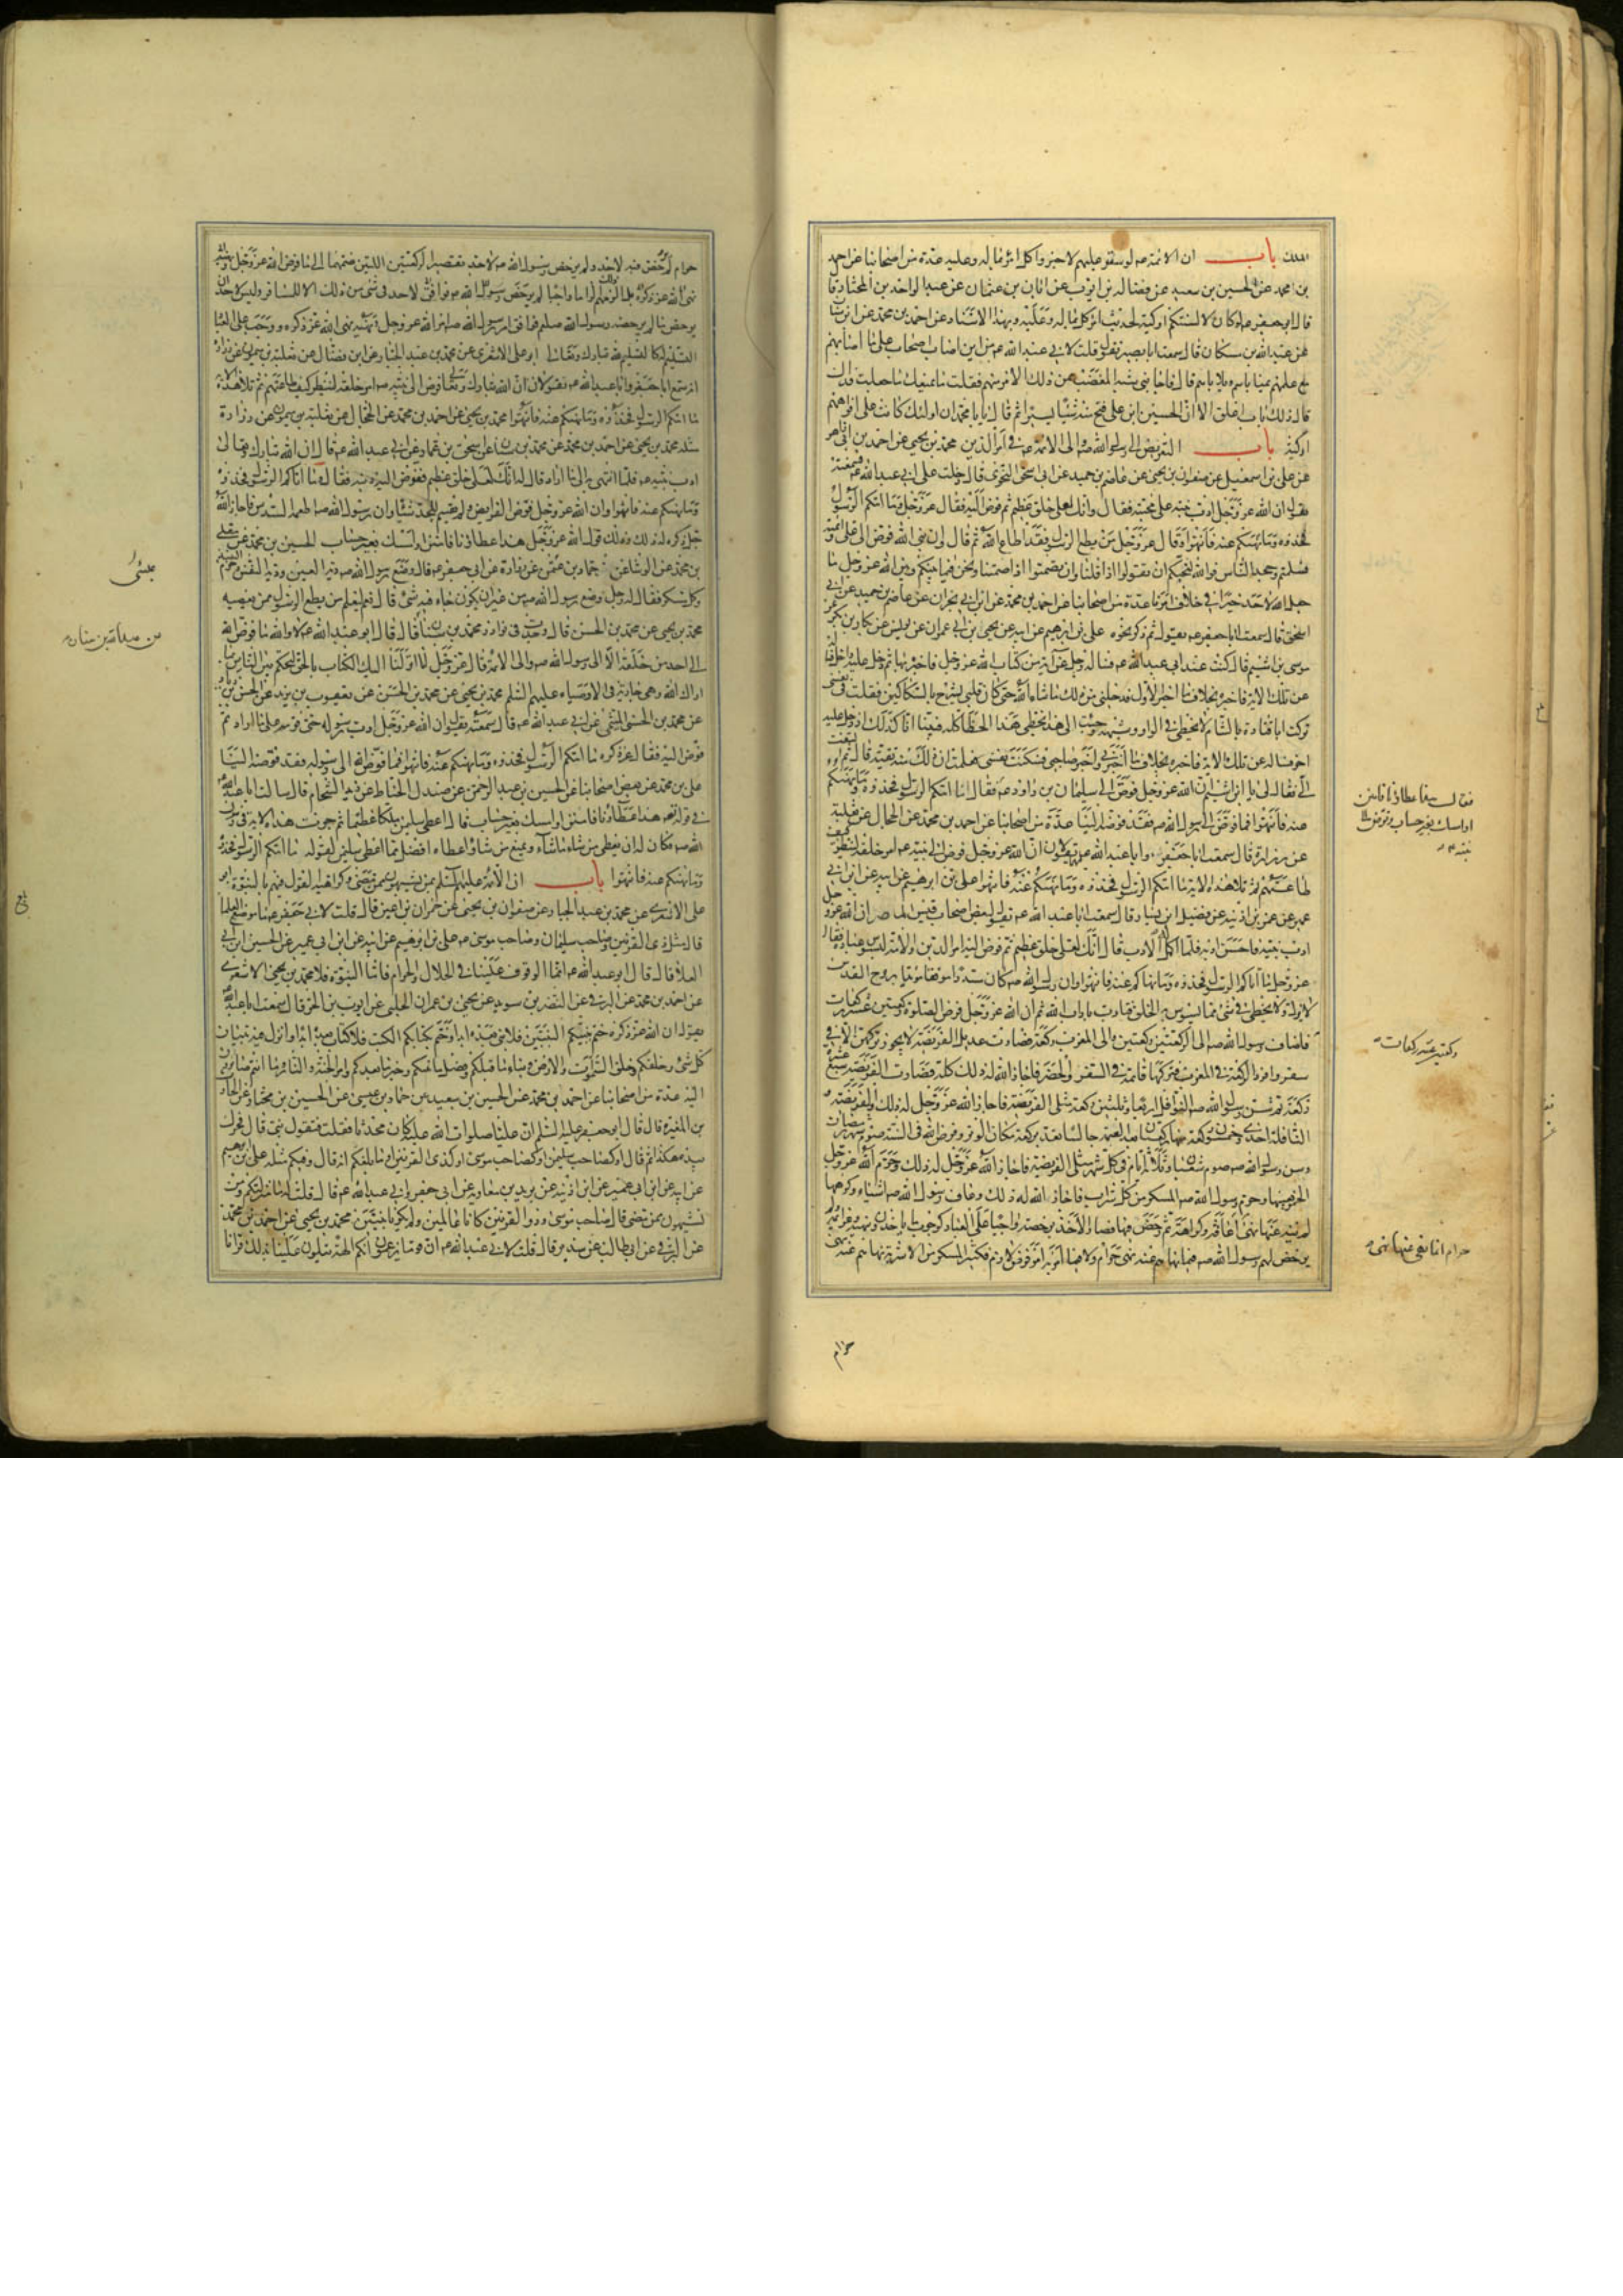 الملك باب ان الائمة عم لو ستر عليهم لاخبروا كل امرئ بما له وعليه عدة من اصحابنا عن احمد
بن محمد عن الحسين بن سعيد عن فضالة بن ايوب عن ابان بن عثمان عن عبد الواحد بن المختار قا
قال ابو جعفر عم لو كان لالسنتكم اوكية لحدثت كل امرئ بما له وعليه وبهذا الاسناد عن احمد بن محمد عن ابن سنا
عن عبد الله بن مسكان قال سمعت ابا بصير يقول قلت لابي عبد الله عم من اين اصاب اصحاب علي ما اصابهم
مع علمهم بمناياهم وبلاياهم قال فاجابني شبه المغضب ممن ذلك الا منهم فقلت ما يمنعك جعلت فداك
قال ذلك باب اغلق الا ان الحسين ابن علي فتح منه شيئا يسيرا ثم قال يابا محمد ان اولئك كانت على افواههم
اوكية باب التفويض الى رسول الله ص والى الائمة عم في امر الدين محمد بن يحيى عن احمد بن ابي زاهر
عن علي بن اسمعيل عن صفوان بن يحيى عن عاصم بن حميد عن ابي اسحق النحوي قال دخلت على ابي عبد الله عم فسمعته
يقول ان الله عز وجل ادب نبيه على محبته فقال وانك لعلى خلق عظيم ثم فوض اليه فقال عز وجل وما اتيكم الرسول
فخذوه وما نهيكم عنه فانتهوا وقال عز وجل من يطع الرسول فقد اطاع الله ثم قال وان نبي الله فوض الى علي وائتمنه
فسلمتم وجحد الناس فوالله لنحبكم ان تقولوا اذا قلنا وان تصمتوا اذا صمتنا ونحن فيما بينكم وبين الله عز وجل ما
جعل الله لاحد خيرا في خلاف امرنا عدة من اصحابنا عن احمد بن محمد عن ابن ابي نجران عن عاصم بن حميد عن ابي
اسحق قال سمعت ابا جعفر عم يقول ثم ذكر نحوه علي بن ابرهيم عن ابيه عن يحيى بن ابي عمران عن يونس عن بكار بن بكر عن
موسى بن اشيم قال كنت عند ابي عبد الله عم فساله رجل عن اية من كتاب الله عز وجل فاخبره بها ثم دخل عليه داخل فسأله
عن تلك الاية فاخبره بخلاف ما اخبر الاول فدخلني من ذلك ما شاء الله حتى كان قلبي يشرح بالسكاكين فقلت في نفسي
تركت ابا قتادة بالشام لا يخطئ في الواو وشبهه وجئت الى هذا يخطئ هذا الخطأ كله فبينا انا كذلك اذ دخل عليه
اخر فساله عن تلك الاية فاخبره بخلاف ما اخبرني واخبر صاحبي فسكنت نفسي فعلمت ان ذلك منه تقية قال ثم التفت
الي فقال لي يا ابن اشيم ان الله عز وجل فوض الى سليمان بن داود عم فقال
وما اتيكم الرسول فخذوه وما نهيكم
عنه فانتهوا فما فوض الى رسول الله ص فقد فوضه الينا عدة من اصحابنا عن احمد بن محمد عن الحجال عن ثعلبة
عن زرارة قال سمعت ابا جعفر وابا عبد الله عم يقولان ان الله عز وجل فوض الى نبيه عم امر خلقه لينظر كيف
طاعتهم ثم تلا هذه الاية ما اتيكم الرسول فخذوه وما نهيكم عنه فانتهوا علي بن ابرهيم عن ابيه عن ابن ابي
عمير عن عمر بن اذينة عن فضيل ابن يسار قال سمعت ابا عبد الله عم يقول لبعض اصحاب قيس الماصر ان الله عز وجل
ادب نبيه فاحسن ادبه فلما اكمل له الادب قال انك لعلى خلق عظيم ثم فوض اليه امر الدين والامة ليسوس عباده فقال
عز وجل ما اتاكم الرسول فخذوه وما نهاكم عنه فانتهوا وان رسول الله ص كان مسددا موفقا مؤيدا بروح القدس
لا يزل ولا يخطئ في شئ مما يسوس به الخلق فتادب باداب الله ثم ان الله عز وجل فرض الصلوة ركعتين عشر ركعات
فاضاف رسول الله ص الى الركعتين ركعتين والى المغرب ركعة فصارت عديل الفريضة لا يجوز تركهن الا في
سفر وافرد الركعة في المغرب فتركها قائمة في السفر والحضر فاجاز الله له ذلك كله فصارت الفريضة سبع عشرة
ركعة ثم سن رسول الله ص النوافل اربعا وثلثين ركعة مثلي الفريضة فاجاز الله عز وجل له ذلك والفريضة و
النافلة احدى وخمسون ركعة منها ركعتان بعد العتمة جالسا تعد بركعة مكان الوتر وفرض الله في السنة صوم شهر رمضان
وسن رسول الله ص صوم شعبان وثلاثة ايام في كل شهر مثلي الفريضة فاجاز الله عز وجل له ذلك وحرم الله عز وجل
الخمر بعينها وحرم رسول الله ص المسكر من كل شراب فاجاز الله له ذلك وعاف رسول الله ص اشياء وكرهها
لم ينه عنها نهي
يرخص لهم رسول الله ص فيما نهاهم عنه نهي حرام ولا فيما امر به امر فرض لازم فكثير المسكر من الاشربة نهاهم عنه نهي
حرام
فقال هذا عطاؤنا فامنن
او امسك بغير حساب وفوض الى
نبيه ص
ركعتين عشر ركعات
حرام انما نهى عنها نهي
حرام لم يرخص فيه لاحد ولم يرخص رسول الله ص لاحد تقصير الركعتين اللتين ضمهما الى ما فرض الله عز وجل
يرخص ما لم يرخصه رسول الله صلعم فوافق امر رسول الله ص امر الله عز وجل ونهيه نهي الله عز ذكره ووجب على العباد
التسليم له كالتسليم لله تبارك وتعالى ابو علي الاشعري عن محمد بن عبد الجبار عن ابن فضال عن ثعلبة بن ميمون عن زرارة
انه سمع ابا جعفر وابا عبد الله عم يقولان ان الله تبارك وتعالى فوض الى نبيه ص امر خلقه لينظر كيف طاعتهم ثم تلا هذه الاية
ما اتيكم الرسول فخذوه وما نهيكم عنه فانتهوا محمد بن يحيى عن احمد بن محمد عن الحجال عن ثعلبة بن ميمون عن زرارة
مثله محمد بن يحيى عن احمد بن محمد عن محمد بن سنان عن اسحق بن عمار عن ابي عبد الله عم قال ان الله تبارك وتعالى
ادب نبيه عم فلما انتهى به الى ما اراد قال له انك لعلى خلق عظيم ففوض اليه دينه فقال وما اتاكم الرسول فخذوه
وما نهيكم عنه فانتهوا وان الله عز وجل فرض الفرايض ولم يقسم للجد شيئا وان رسول الله ص اطعمه السدس فاجاز الله
جل ذكره له ذلك وذلك قول الله عز وجل هذا عطاؤنا فامنن او امسك بغير حساب الحسين بن محمد عن معلى
بن محمد عن الوشا عن حماد بن عثمن عن زرارة عن ابي جعفر عم قال وضع رسول الله ص دية العين ودية النفس وحرم النبيذ
وكل مسكر فقال له رجل وضع رسول الله ص من غير ان يكون جاء فيه شئ قال نعم ليعلم من يطع الرسول ممن يعصيه
محمد بن يحيى عن محمد بن الحسن قال وجدت في نوادر محمد بن سنان قال قال ابو عبد الله عم لا والله ما فوض الله
الى احد من خلقه الا الى رسول الله ص والى الائمة قال عز وجل انا انزلنا اليك الكتاب بالحق لتحكم بين الناس بما
اراك الله وهي جارية في الاوصياء عليهم السلم محمد بن يحيى عن محمد بن الحسن عن يعقوب بن يزيد عن الحسن بن زياد
عن محمد بن الحسن الميثمي عن ابي عبد الله عم قال سمعته يقول ان الله عز وجل ادب رسوله حتى قومه على ما اراد ثم
فوض اليه فقال عز ذكره ما اتيكم الرسول فخذوه وما نهيكم عنه فانتهوا فما فوض الله الى رسوله فقد فوضه الينا
علي بن محمد عن بعض اصحابنا عن الحسين بن عبد الرحمن عن صندل الخياط عن زيد الشحام قال سالت ابا عبد الله
في قوله تعالى هذا عطاؤنا فامنن او امسك بغير حساب قال اعطي سليمن ملكا عظيما ثم جرت هذه الاية في رسول
الله ص فكان له ان يعطي من شاء ما شاء ويمنع من شاء واعطاه افضل مما اعطى سليمن لقوله ما اتيكم الرسول فخذوه
وما نهيكم عنه فانتهوا باب ان الائمة عليهم السلم بمن يشبهون ممن مضى وكراهية القول فيهم بالنبوة ابو
علي الاشعري عن محمد بن عبد الجبار عن صفوان بن يحيى عن حمران بن اعين قال قلت لابي جعفر عم ما موضع العلماء
قال مثل ذي القرنين وصاحب سليمان وصاحب موسى عم علي بن ابرهيم عن ابيه عن ابن ابي عمير عن الحسين ابن ابي
العلا قال قال ابو عبد الله عم انما الوقوف علينا في الحلال والحرام فاما النبوة فلا محمد بن يحيى الاشعري
عن احمد بن محمد عن البرقي عن النضر بن سويد عن يحيى بن عمران الحلبي عن ايوب بن الحر قال سمعت ابا عبد الله
يقول ان الله عز ذكره ختم بنبيكم النبيين فلا نبي بعده ابدا وختم بكتابكم الكتب فلا كتاب بعده ابدا وانزل فيه تبيان
كل شئ وخلقكم وخلق السموات والارض ونبأ ما قبلكم وفصل ما بينكم وخبر ما بعدكم وامر الجنة والنار وما انتم صائرون
اليه عدة من اصحابنا عن احمد بن محمد عن الحسين بن سعيد عن حماد بن عيسى عن الحسين بن مختار عن الحارث
بن المغيرة قال قال ابو جعفر عليه السلم ان عليا صلوات الله عليه كان محدثا فقلت فتقول نبي قال فحرك
بيده هكذا ثم قال او كصاحب سليمن او كصاحب موسى او كذي القرنين او ما بلغكم انه قال وفيكم مثله علي بن ابرهيم
عن ابيه عن ابن ابي عمير عن ابن اذينة عن بريد بن معاوية عن ابي جعفر وابي عبد الله عم قال قلت له ما منزلتكم ومن
تشبهون ممن مضى قال صاحب موسى وذو القرنين كانا عالمين ولم يكونا نبيين محمد بن يحيى عن احمد بن محمد
عن البرقي عن ابي طالب عن سدير قال قلت لابي عبد الله عم ان قوما يزعمون انكم الهة يتلون علينا بذلك قرانا